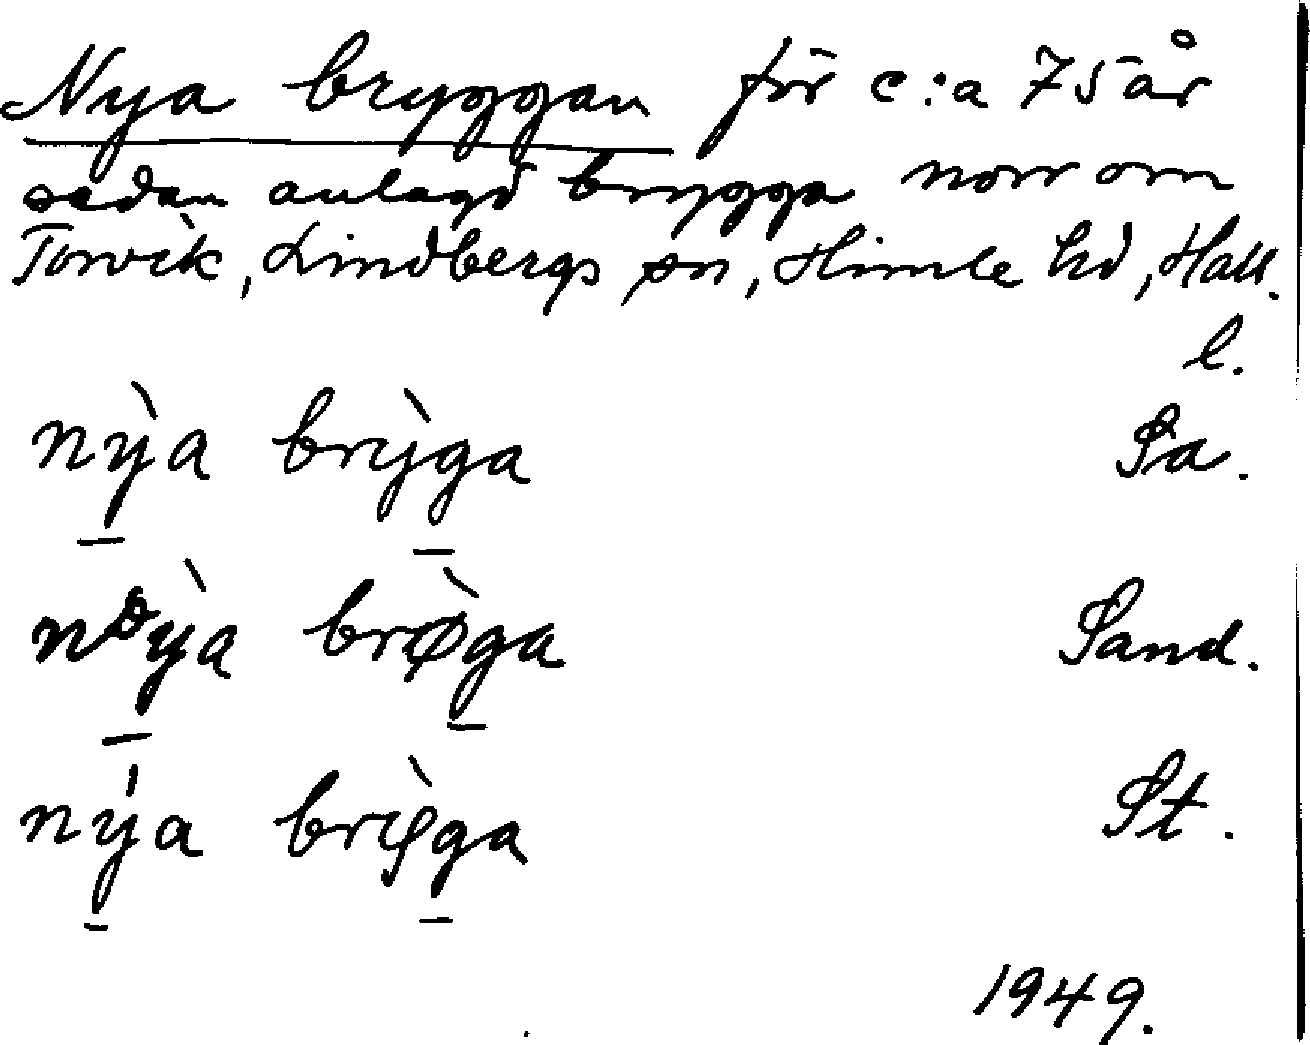 Nya bryggan för c:a 75 år
sedan anlagd brygga norr om
Torvik, Lindbergs sn, Himle hd, Hall.
l.
nỳa brỳga Sa.
nᶞỳa brø̀ga Sand.
nýa brφ̀ga St.
1949.